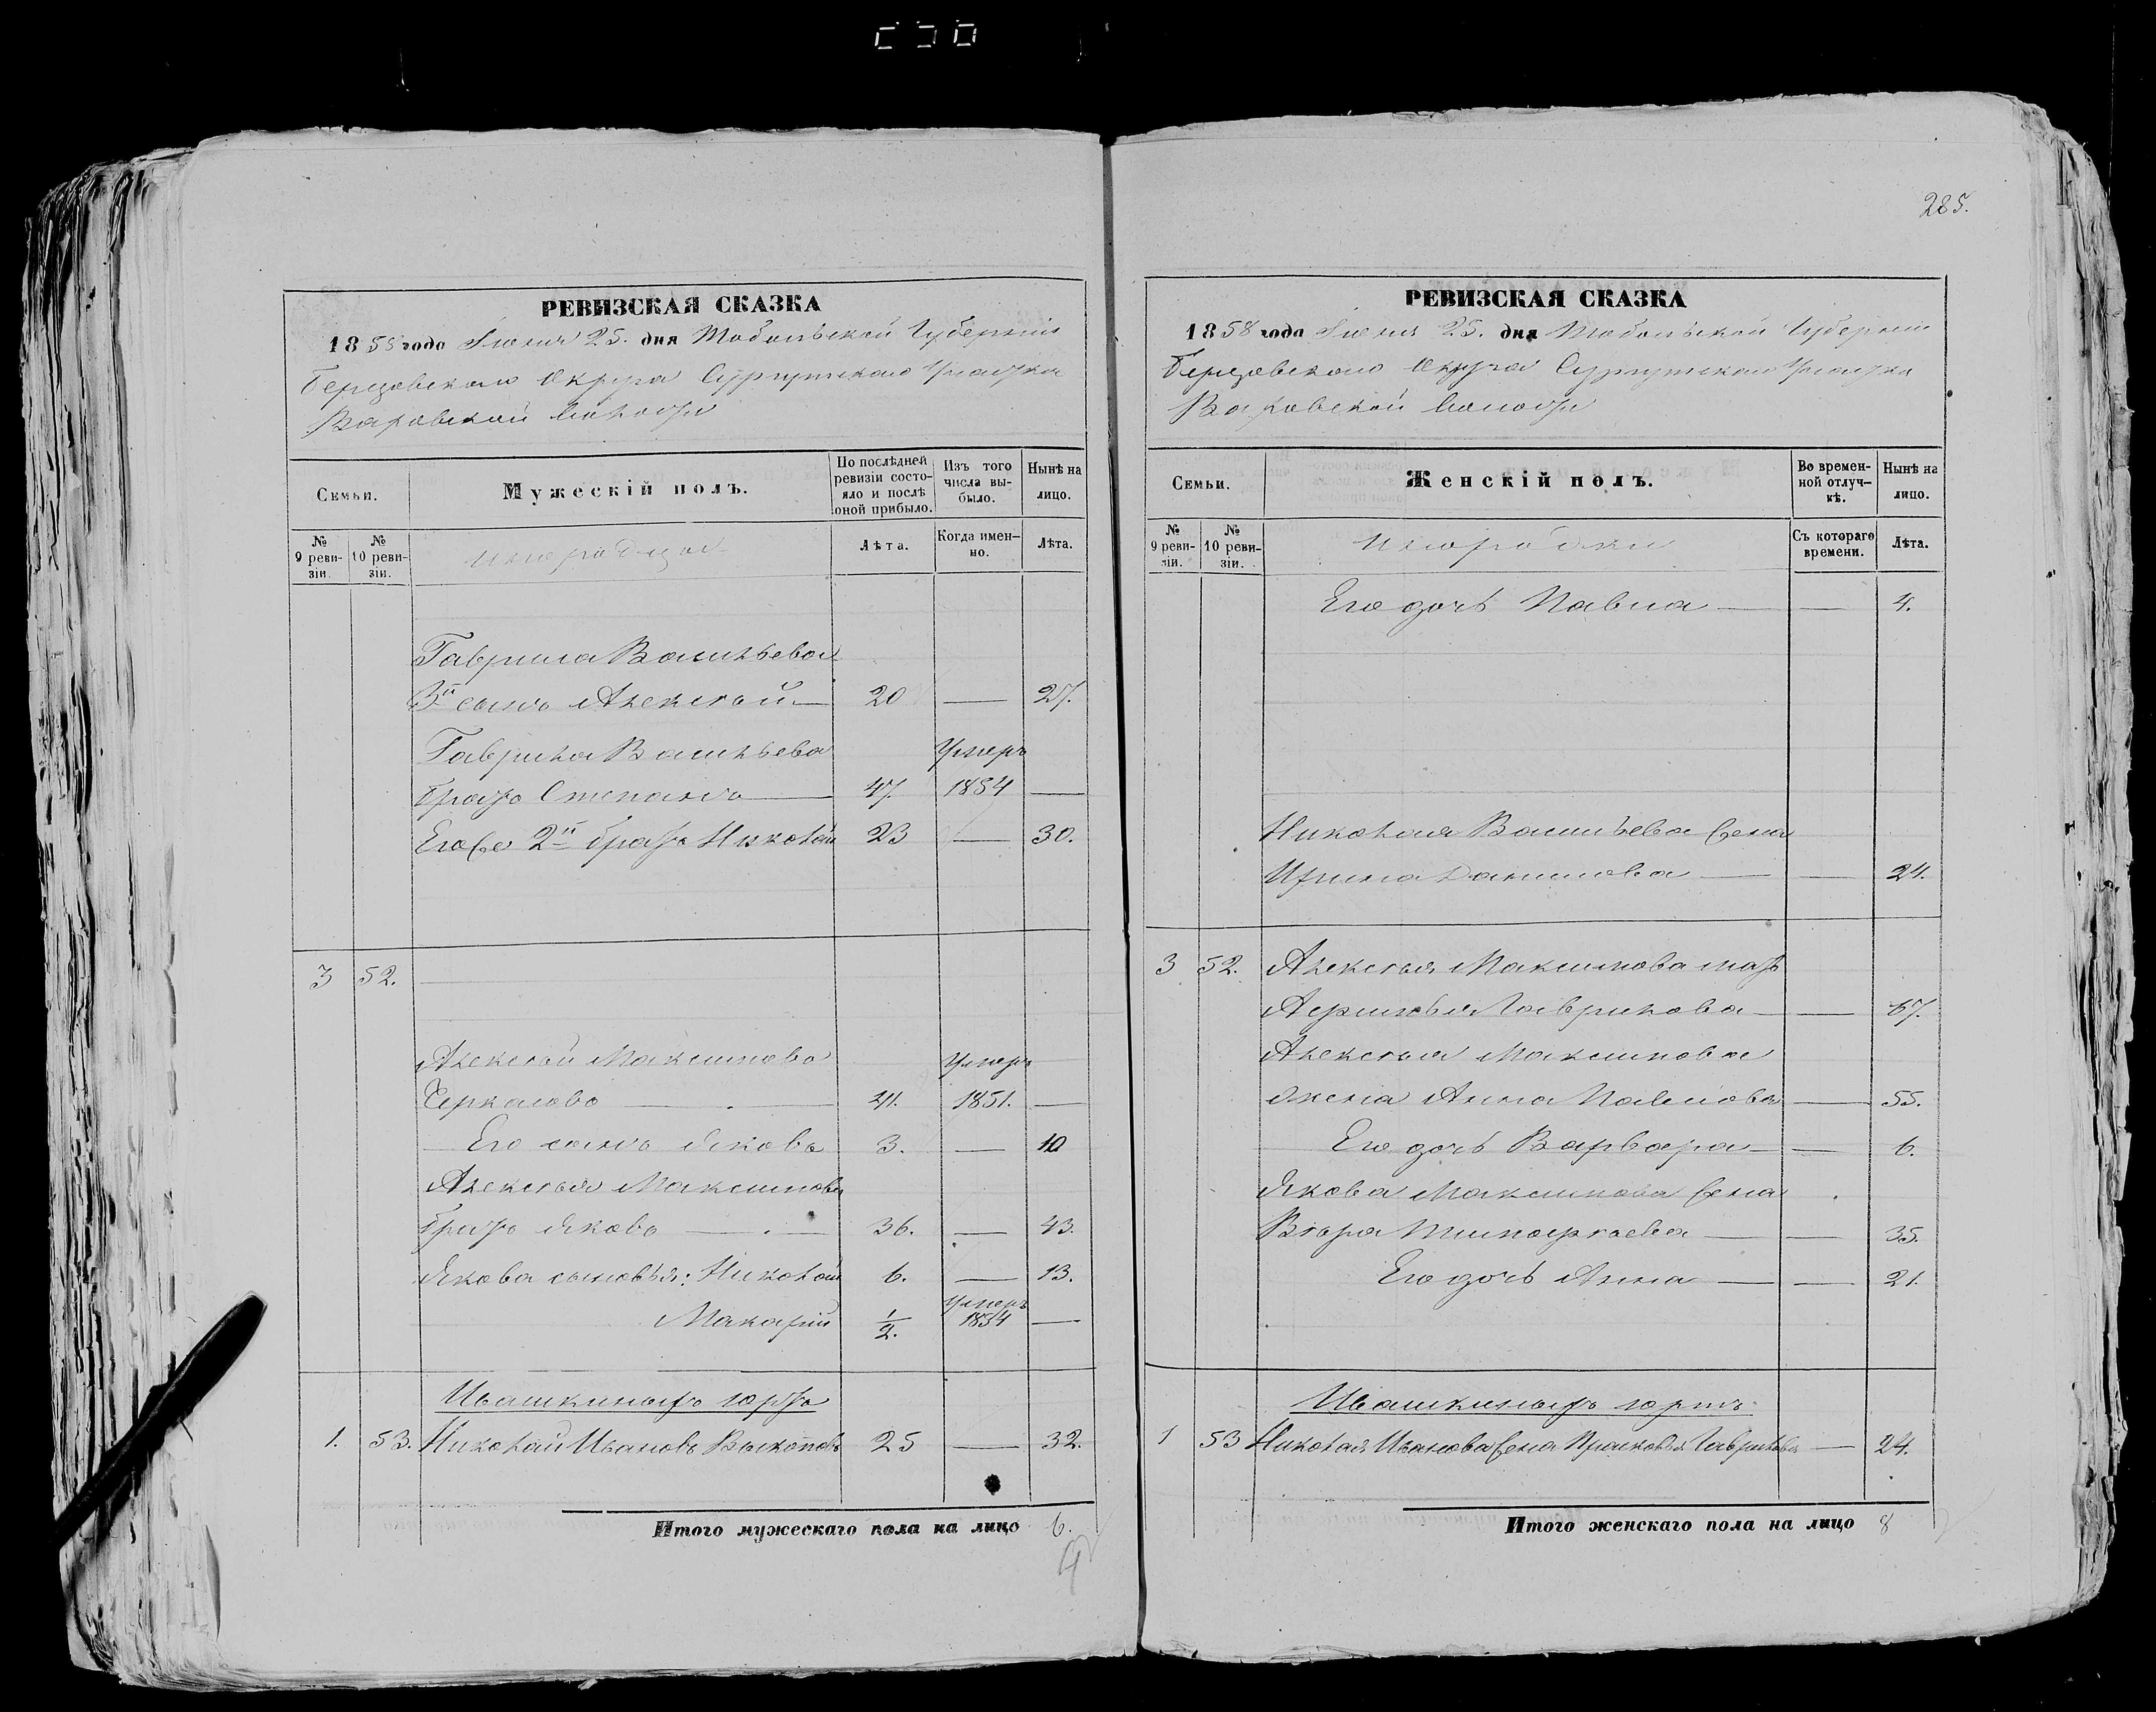 285.
РЕВИЗСКАЯ СКАЗКА
1858 года Іюня 25. дня Тобольской Губерніи
Березовскаго Округа Сургутскаго Участка
Ваховской Волости
Семьи.
Мужескій полъ.
По послѣдней ревизіи состояло и послѣ оной прибыло.
Изъ того числа выбыло.
Нынѣ на лицо.
№ 9 ревизіи.
№ 10 ревизіи.
инородцы
Лѣта.
Когда именно.
Лѣта.
Гаврила Васильева
3й сынъ Алексѣй — 20 — 27.
Гаврила Васильева Умеръ
братъ Степанъ — 47. 1854 —
Его же 2й братъ Николай 23 — 30.
3 52.
Алексѣй Максимовъ Умеръ
41. 1851. —
Его сынъ Яковъ 3. — 10
Алексѣя Максимова
братъ Яковъ — 36. — 43.
Якова сыновья: Николай 6. — 13.
Макарій 1/2. умеръ 1854 —
Ивашкиныхъ юртъ
1. 53. Николай Ивановъ 25 — 32.
Итого мужескаго пола на лицо 6.
РЕВИЗСКАЯ СКАЗКА
1858 года Іюня 25. дня Тобольской Губерніи
Березовскаго Округа Сургутскаго Участка
Ваховской Волости
Семьи.
Женскій полъ.
Во временной отлучкѣ.
Нынѣ на лицо.
№ 9 ревизіи.
№ 10 ревизіи.
инородки
Съ котораго времени.
Лѣта.
Его дочь Павла — — 4.
Николая Васильева жена
Ирина Данилова — — 24.
3 52. Алексѣя Максимова мать
Гаврилова — — 67.
Алексѣя Максимова
жена Анна Павлова — 55.
Его дочь Варвара — — 6.
Якова Максимова жена
Вѣра Тимофѣева — — 35.
Его дочь Анна — — 21.
Ивашкиныхъ юртъ
1 53 Николая Иванова жена Прасковья Гаврилова — 24.
Итого женскаго пола на лицо 8